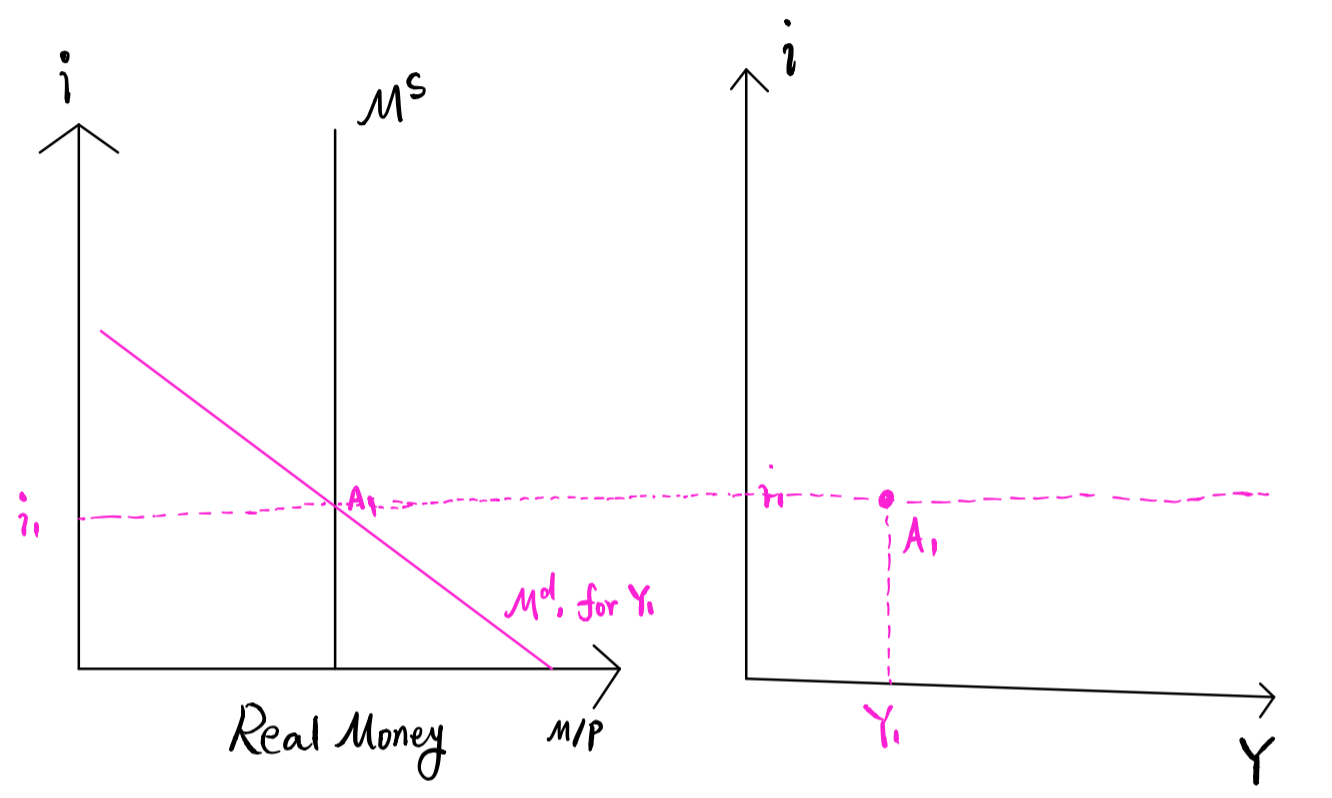 i
Mˢ
A₁
i₁
Mᵈ, for Y₁
Real Money
M/P
i
i₁
A₁
Y₁
Y